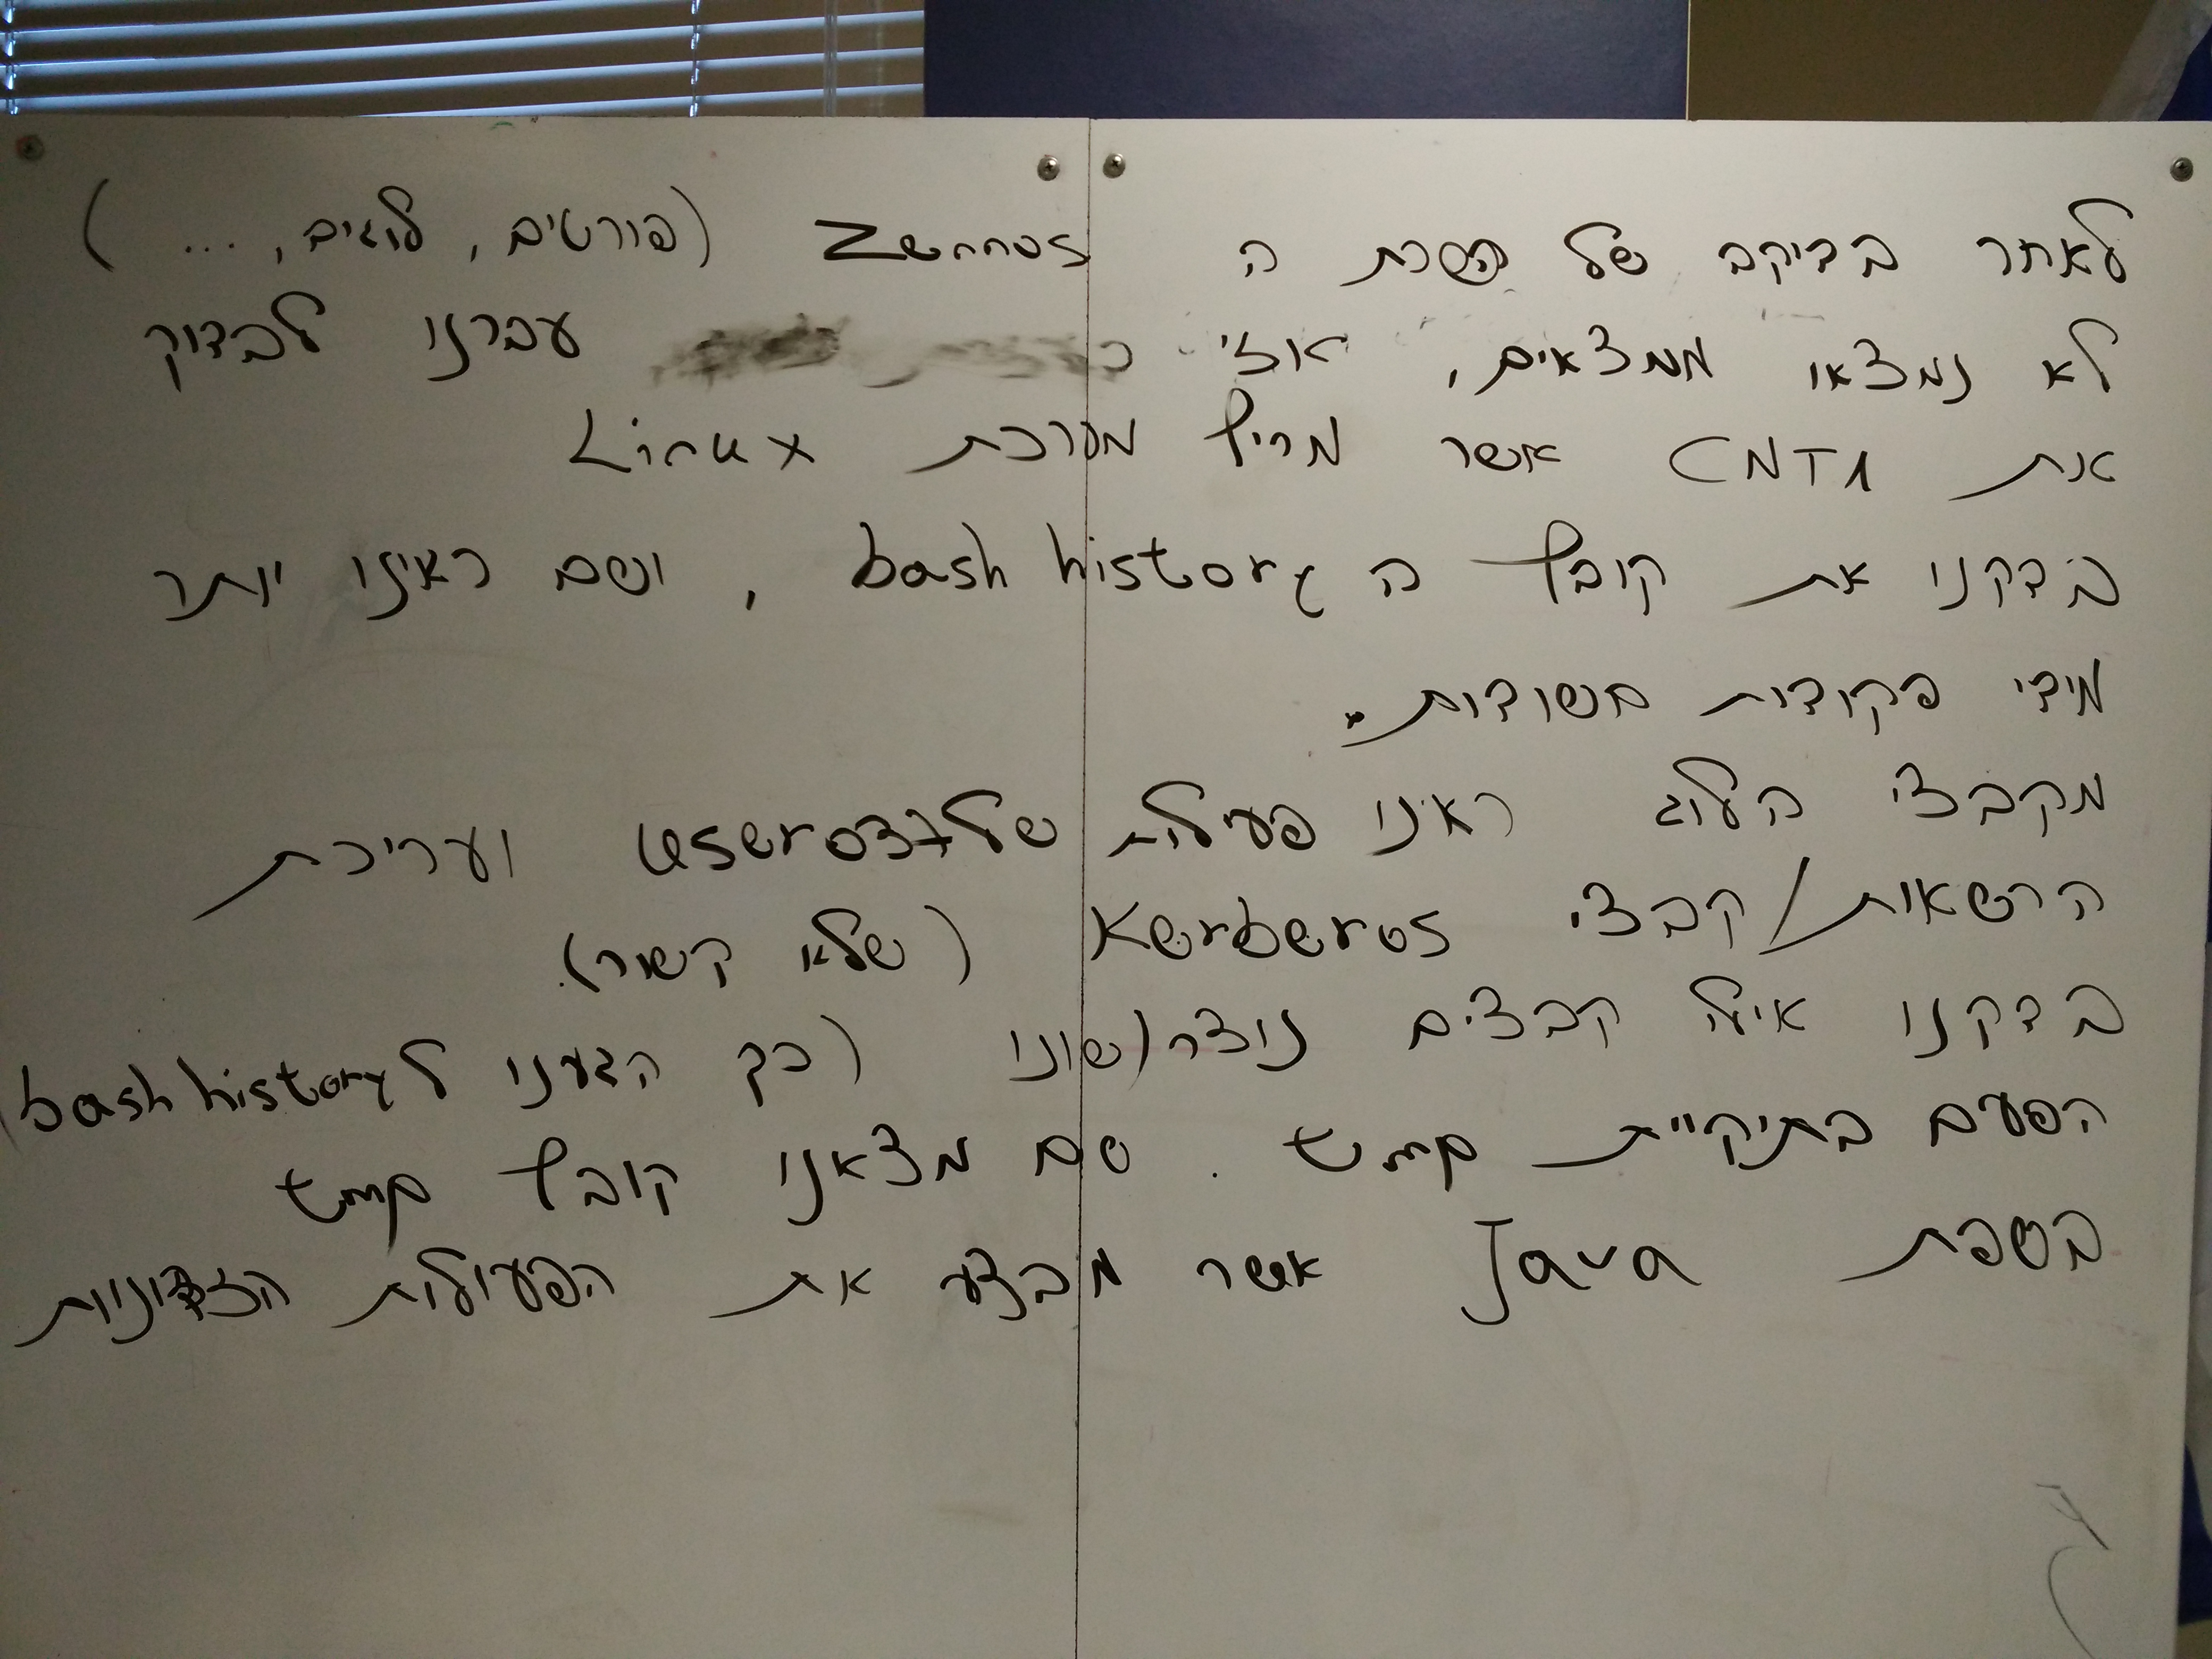 לאחר בדיקה של השרת ה Zennos (פורטים, לוגים, ...)
לא נמצאו ממצאים, אזי עברנו לבדוק
את CNT1 אשר מריץ מערכת Linux
בדקנו את קובץ ה bash history , ושם ראינו יותר
מידי פקודות חשודות.
מקבצי הלוג ראינו פעילות של user037 ועריכת
הרשאות/קבצי Kerberos (שלא קשור).
בדקנו אילו קבצים נוצרו/שונו (כך הגענו ל bash history)
הפעם בתיקיית tmp . שם מצאנו קובץ tmp
בשפת Java אשר מבצע את הפעולות הזדוניות